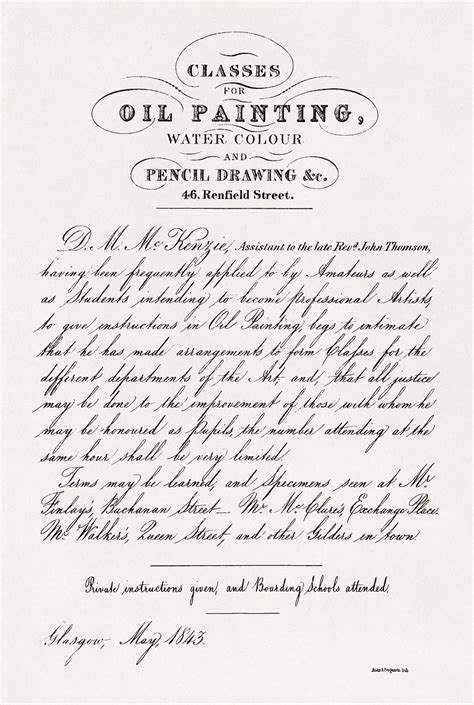 CLASSES
FOR
OIL PAINTING,
WATER COLOUR
AND
PENCIL DRAWING &c.
46. Renfield Street.
D. M. Mc. Kenzie, Assistant to the late Revd. John Thomson,
having been frequently applied to by Amateurs as well
as Students intending to become professional Artists,
to give instructions in Oil Painting, begs to intimate
that he has made arrangements to form Claſses for the
different departments of the Art, and, that all justice
may be done to the improvement of those with whom he
may be honoured as Pupils, the number attending at the
same hour shall be very limited.
Terms may be learned, and Specimens seen at Mr.
Finlay's, Buchanan Street_ Mr. Mc. Clure's, Exchange Place.
Mr. Walker's, Queen Street, and other Gilders in town.
Private instructions given, and Boarding Schools attended.
Glasgow, May, 1843.